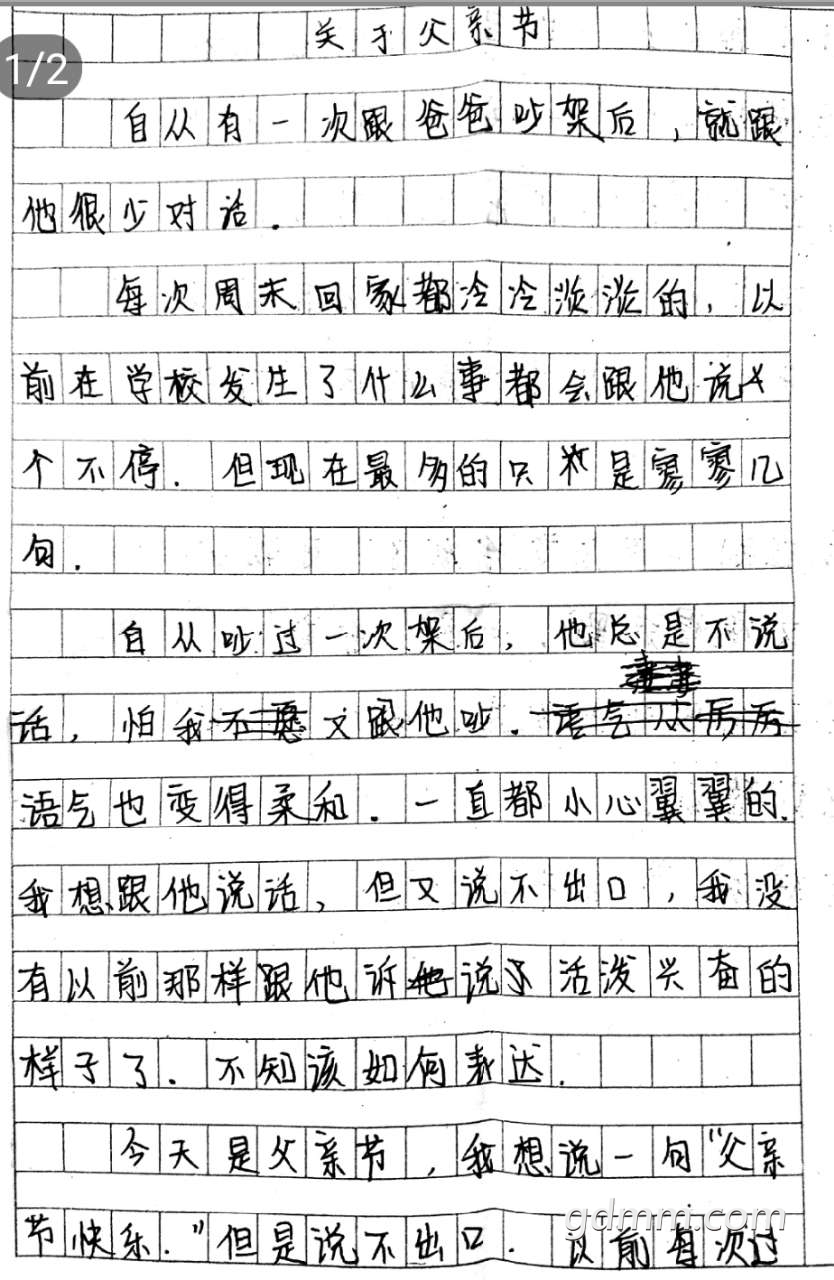 关于父亲节
1/2
自从有一次跟爸爸吵架后，就跟
他很少对话.
每次周末回家都冷冷淡淡的，以
前在学校发生了什么事都会跟他说
个不停.但现在最多的只是寥寥几
句.
自从吵过一次架后，他总是不说
话，怕我又跟他吵.
语气也变得柔和.一直都小心翼翼的.
我想跟他说话，但又说不出口，我没
有以前那样跟他诉说活泼兴奋的
样子了.不知该如何表达.
今天是父亲节，我想说一句"父亲
节快乐."但是说不出口.以前每次过
gdmm.com